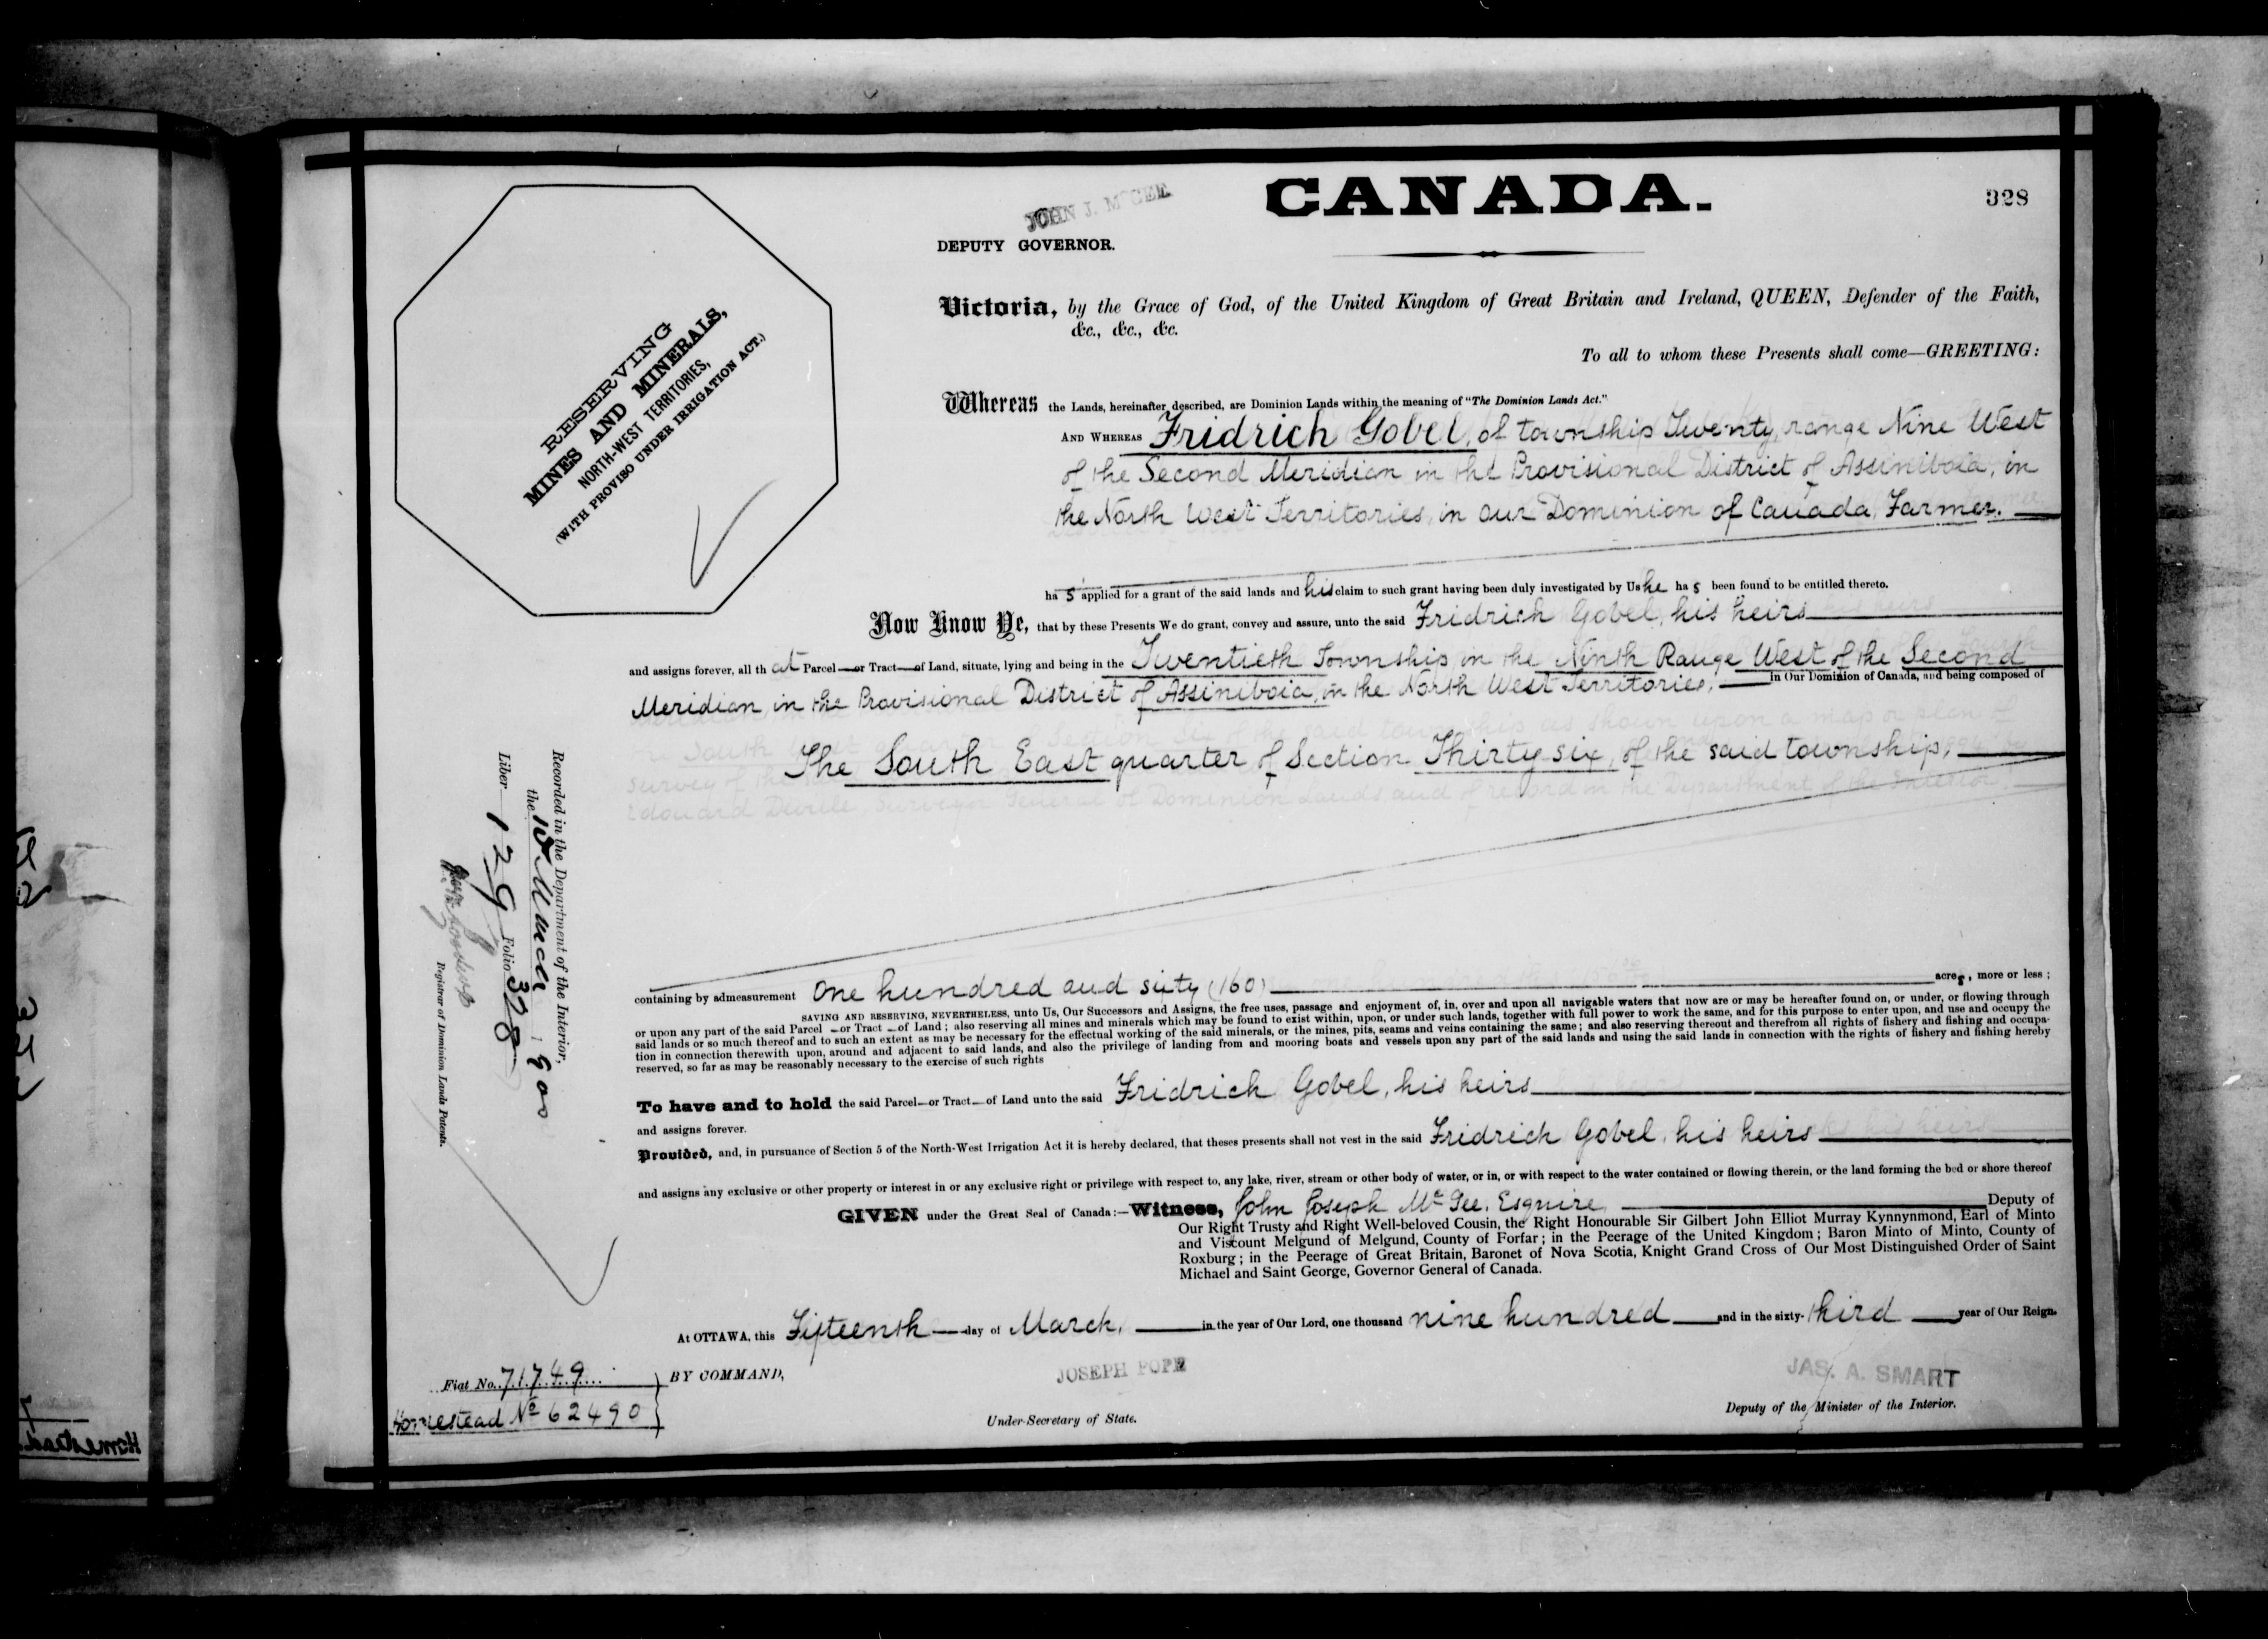 CANADA.
328
JOHN J. McGEE
DEPUTY GOVERNOR.
RESERVING
MINES AND MINERALS,
NORTH-WEST TERRITORIES,
(WITH PROVISO UNDER IRRIGATION ACT.)
Victoria, by the Grace of God, of the United Kingdom of Great Britain and Ireland, QUEEN, Defender of the Faith,
&c., &c., &c.
To all to whom these Presents shall come—GREETING:
Whereas the Lands, hereinafter described, are Dominion Lands within the meaning of "The Dominion Lands Act."
AND WHEREAS Fridrich Gobel, of township Twenty, range Nine West
of the Second Meridian in the Provisional District of Assiniboia, in
the North West Territories, in Our Dominion of Canada, Farmer.
has applied for a grant of the said lands and his claim to such grant having been duly investigated by Us he has been found to be entitled thereto.
Now Know Ye, that by these Presents We do grant, convey and assure, unto the said Fridrich Gobel, his heirs
and assigns forever, all that Parcel—or Tract—of Land, situate, lying and being in the Twentieth Township in the Ninth Range West of the Second
Meridian, in the Provisional District of Assiniboia, in the North West Territories, in Our Dominion of Canada, and being composed of
The South East quarter of Section Thirty six, of the said township,
containing by admeasurement One hundred and sixty (160) acres, more or less;
SAVING AND RESERVING, NEVERTHELESS, unto Us, Our Successors and Assigns, the free uses, passage and enjoyment of, in, over and upon all navigable waters that now are or may be hereafter found on, or under, or flowing through
or upon any part of the said Parcel—or Tract—of Land; also reserving all mines and minerals which may be found to exist within, upon, or under such lands, together with full power to work the same, and for this purpose to enter upon, and use and occupy the
said lands or so much thereof and to such an extent as may be necessary for the effectual working of the said minerals, or the mines, pits, seams and veins containing the same; and also reserving thereout and therefrom all rights of fishery and fishing and occupa-
tion in connection therewith upon, around and adjacent to said lands, and also the privilege of landing from and mooring boats and vessels upon any part of the said lands and using the said lands in connection with the rights of fishery and fishing hereby
reserved, so far as may be reasonably necessary to the exercise of such rights
To have and to hold the said Parcel—or Tract—of Land unto the said Fridrich Gobel, his heirs
and assigns forever.
Provided, and, in pursuance of Section 5 of the North-West Irrigation Act it is hereby declared, that theses presents shall not vest in the said Fridrich Gobel, his heirs
and assigns any exclusive or other property or interest in or any exclusive right or privilege with respect to, any lake, river, stream or other body of water, or in, or with respect to the water contained or flowing therein, or the land forming the bed or shore thereof
GIVEN under the Great Seal of Canada:—Witness, John Joseph McGee, Esquire Deputy of
Our Right Trusty and Right Well-beloved Cousin, the Right Honourable Sir Gilbert John Elliot Murray Kynnynmond, Earl of Minto
and Viscount Melgund of Melgund, County of Forfar; in the Peerage of the United Kingdom; Baron Minto of Minto, County of
Roxburg; in the Peerage of Great Britain, Baronet of Nova Scotia, Knight Grand Cross of Our Most Distinguished Order of Saint
Michael and Saint George, Governor General of Canada.
At OTTAWA, this Fifteenth day of March, in the year of Our Lord, one thousand nine hundred and in the sixty-third year of Our Reign.
BY COMMAND,
JOSEPH POPE
Under-Secretary of State.
JAS. A. SMART
Deputy of the Minister of the Interior.
Fiat No. 71749
Homestead No 62490
Recorded in the Department of the Interior,
the March 1900
Liber 129 Folio 328
Registrar of Dominion Lands Patents.